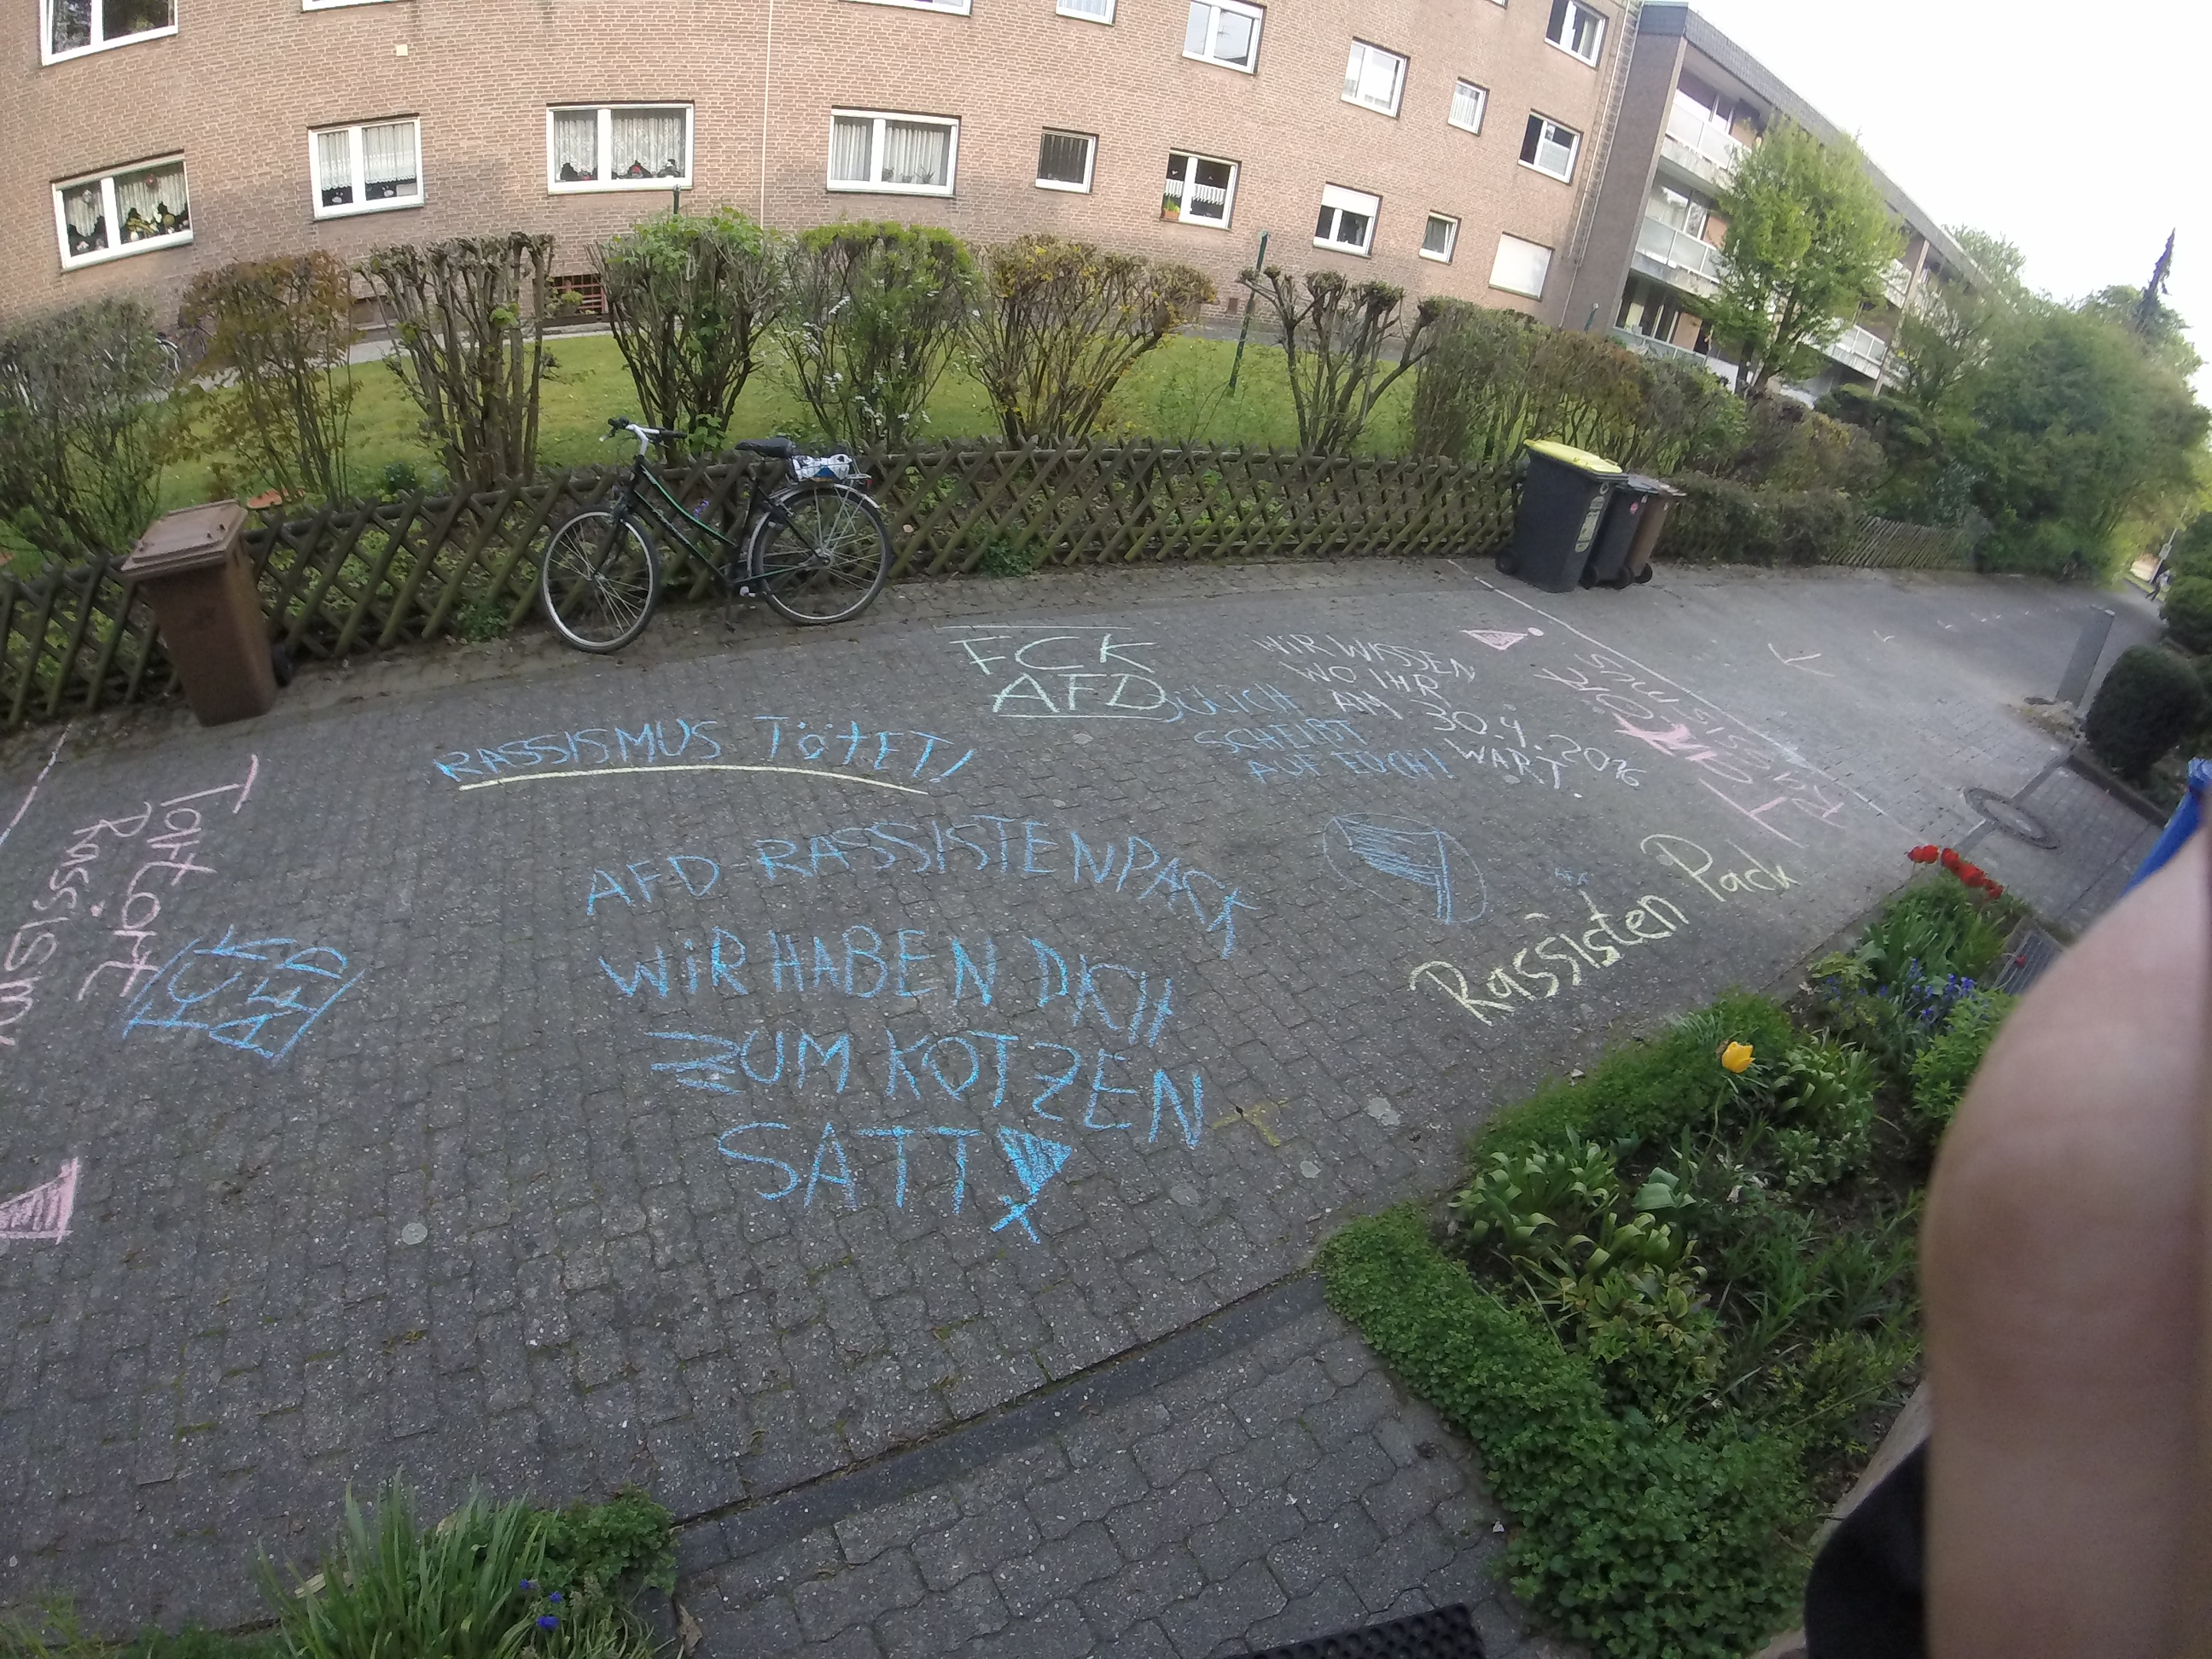 FCK
AFD
WIR WISSEN
WO IHR
AM 30.4.2016
WART
JÜLICH
SCHEIßT
AUF EUCH!
RASSISMUS TötET!
TATORT
RASSISMUS
Tatort
Rassismu
FCK
AFD
AFD RASSISTENPACK
WIR HABEN DICH
ZUM KOTZEN
SATT!
Rassisten Pack